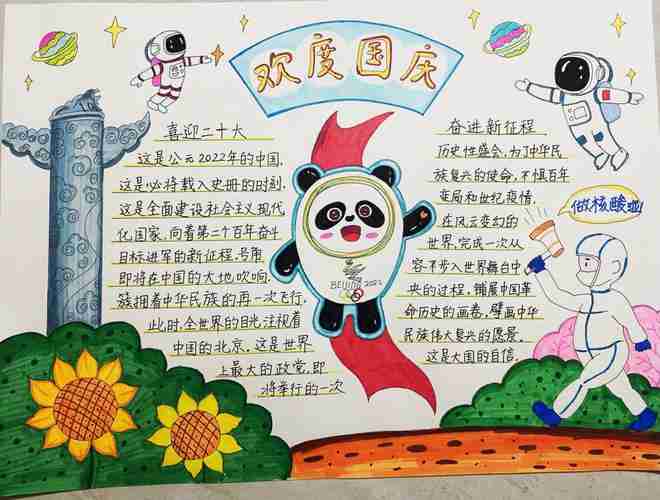 欢度国庆
喜迎二十大
这是公元2022年的中国,
这是必将载入史册的时刻.
这是全面建设社会主义现代
化国家,向着第二个百年奋斗
目标进军的新征程,号角
即将在中国的大地吹响.
簇拥着中华民族的再一次飞行.
此时,全世界的目光,注视着
中国的北京,这是世界
上最大的政党,即
将举行的一次
奋进新征程
历史性盛会,为了中华民
族复兴的使命,不惧百年
变局和世纪疫情,
在风云变幻的
世界,完成一次从
容不步入世界舞台中
央的过程,铺展中国革
命历史的画卷,擘画中华
民族伟大复兴的愿景,
这是大国的自信.
做核酸啦!
BEIJING 2022